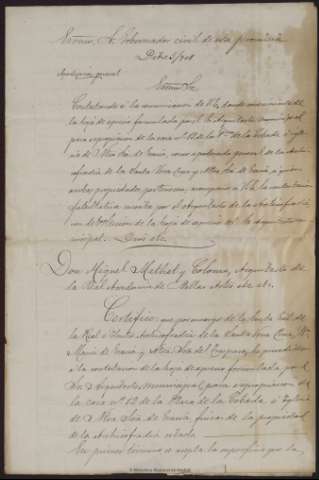 Excmo. Sr. Gobernador civil de esta provincia
Dcbre 5/908
Apoderación general
Excmo Sr
Contestando á la comunicacion de V.E. dando conocimiento de
la hoja de aprecio formulada por el Arquitecto municipal
para expropiacion de la casa nº 12 de la Pza. de la Cebada é igle
sia de Ntra Sra de Gracia, como apoderado general de la Archi-
cofradía de la Santa Vera Cruz y Ntra Sra de Gracia á quien
ambas propiedades pertenecen, acompaño á V.E. la contestacion
facultativa suscrita por el Arquitecto de la Archicofradía
con devolucion de la hoja de aprecio del Sr. Arquitecto muni-
cipal. Dios etc.
Don Miguel Mathet y Coloma, Arquitecto de
la Real Academia de Bellas Artes etc. etc.
Certifico: que por encargo de la Junta de
la Real é Ilustre Archicofradía de la Santa Vera Cruz, Ntra
María de Gracia y Ntra Sra del Traspaso, he procedido
á la contestacion de la hoja de aprecio formulada por el
Sr. Arquitecto municipal para expropiacion de
la casa nº 12 de la Plaza de la Cebada, é Iglesia
de Ntra Sra de Gracia, fincas de la propiedad
de la Archicofradía citada
En primer término se acepta la superficie que la
Biblioteca Nacional de España